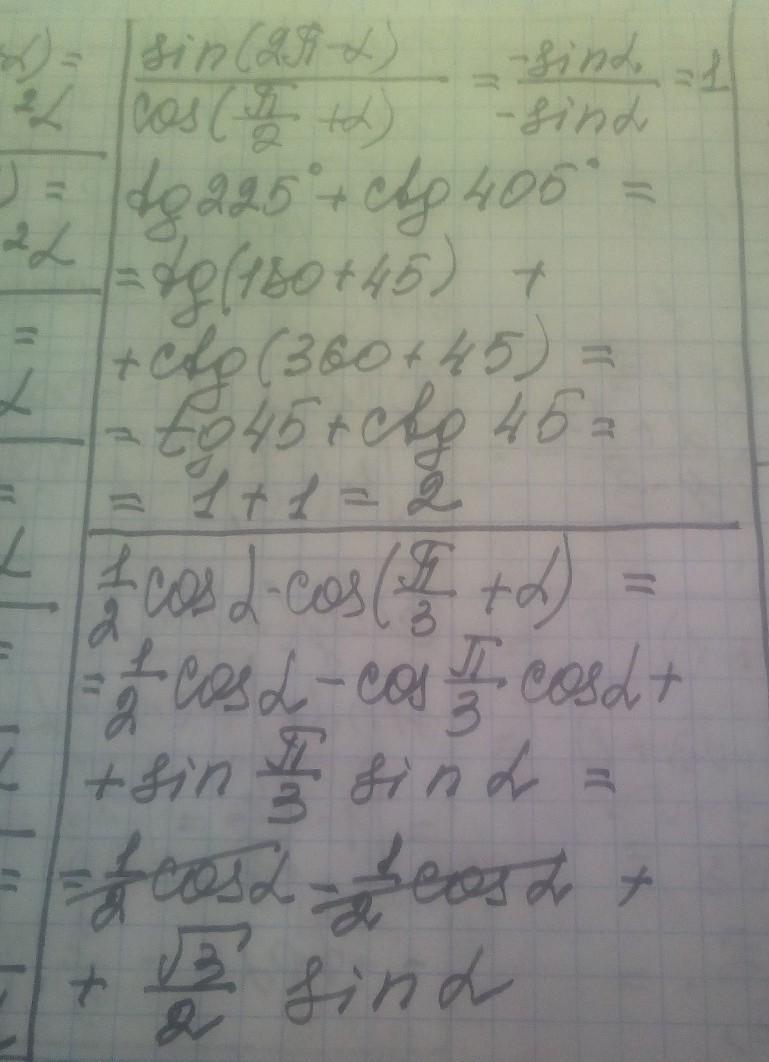 α) =
²α
) =
²α
=
α
=
α
=
=
sin(2π-α)/cos(π/2 +α) = -sinα/-sinα =1
tg 225° + ctg 405° =
= tg(180+45) +
+ ctg(360+45) =
= tg 45 + ctg 45 =
= 1 + 1 = 2
1/2 cos α - cos(π/3 +α) =
= 1/2 cos α - cos π/3 cos α +
+ sin π/3 sin α =
= 1/2 cos α - 1/2 cos α +
+ √3/2 sin α